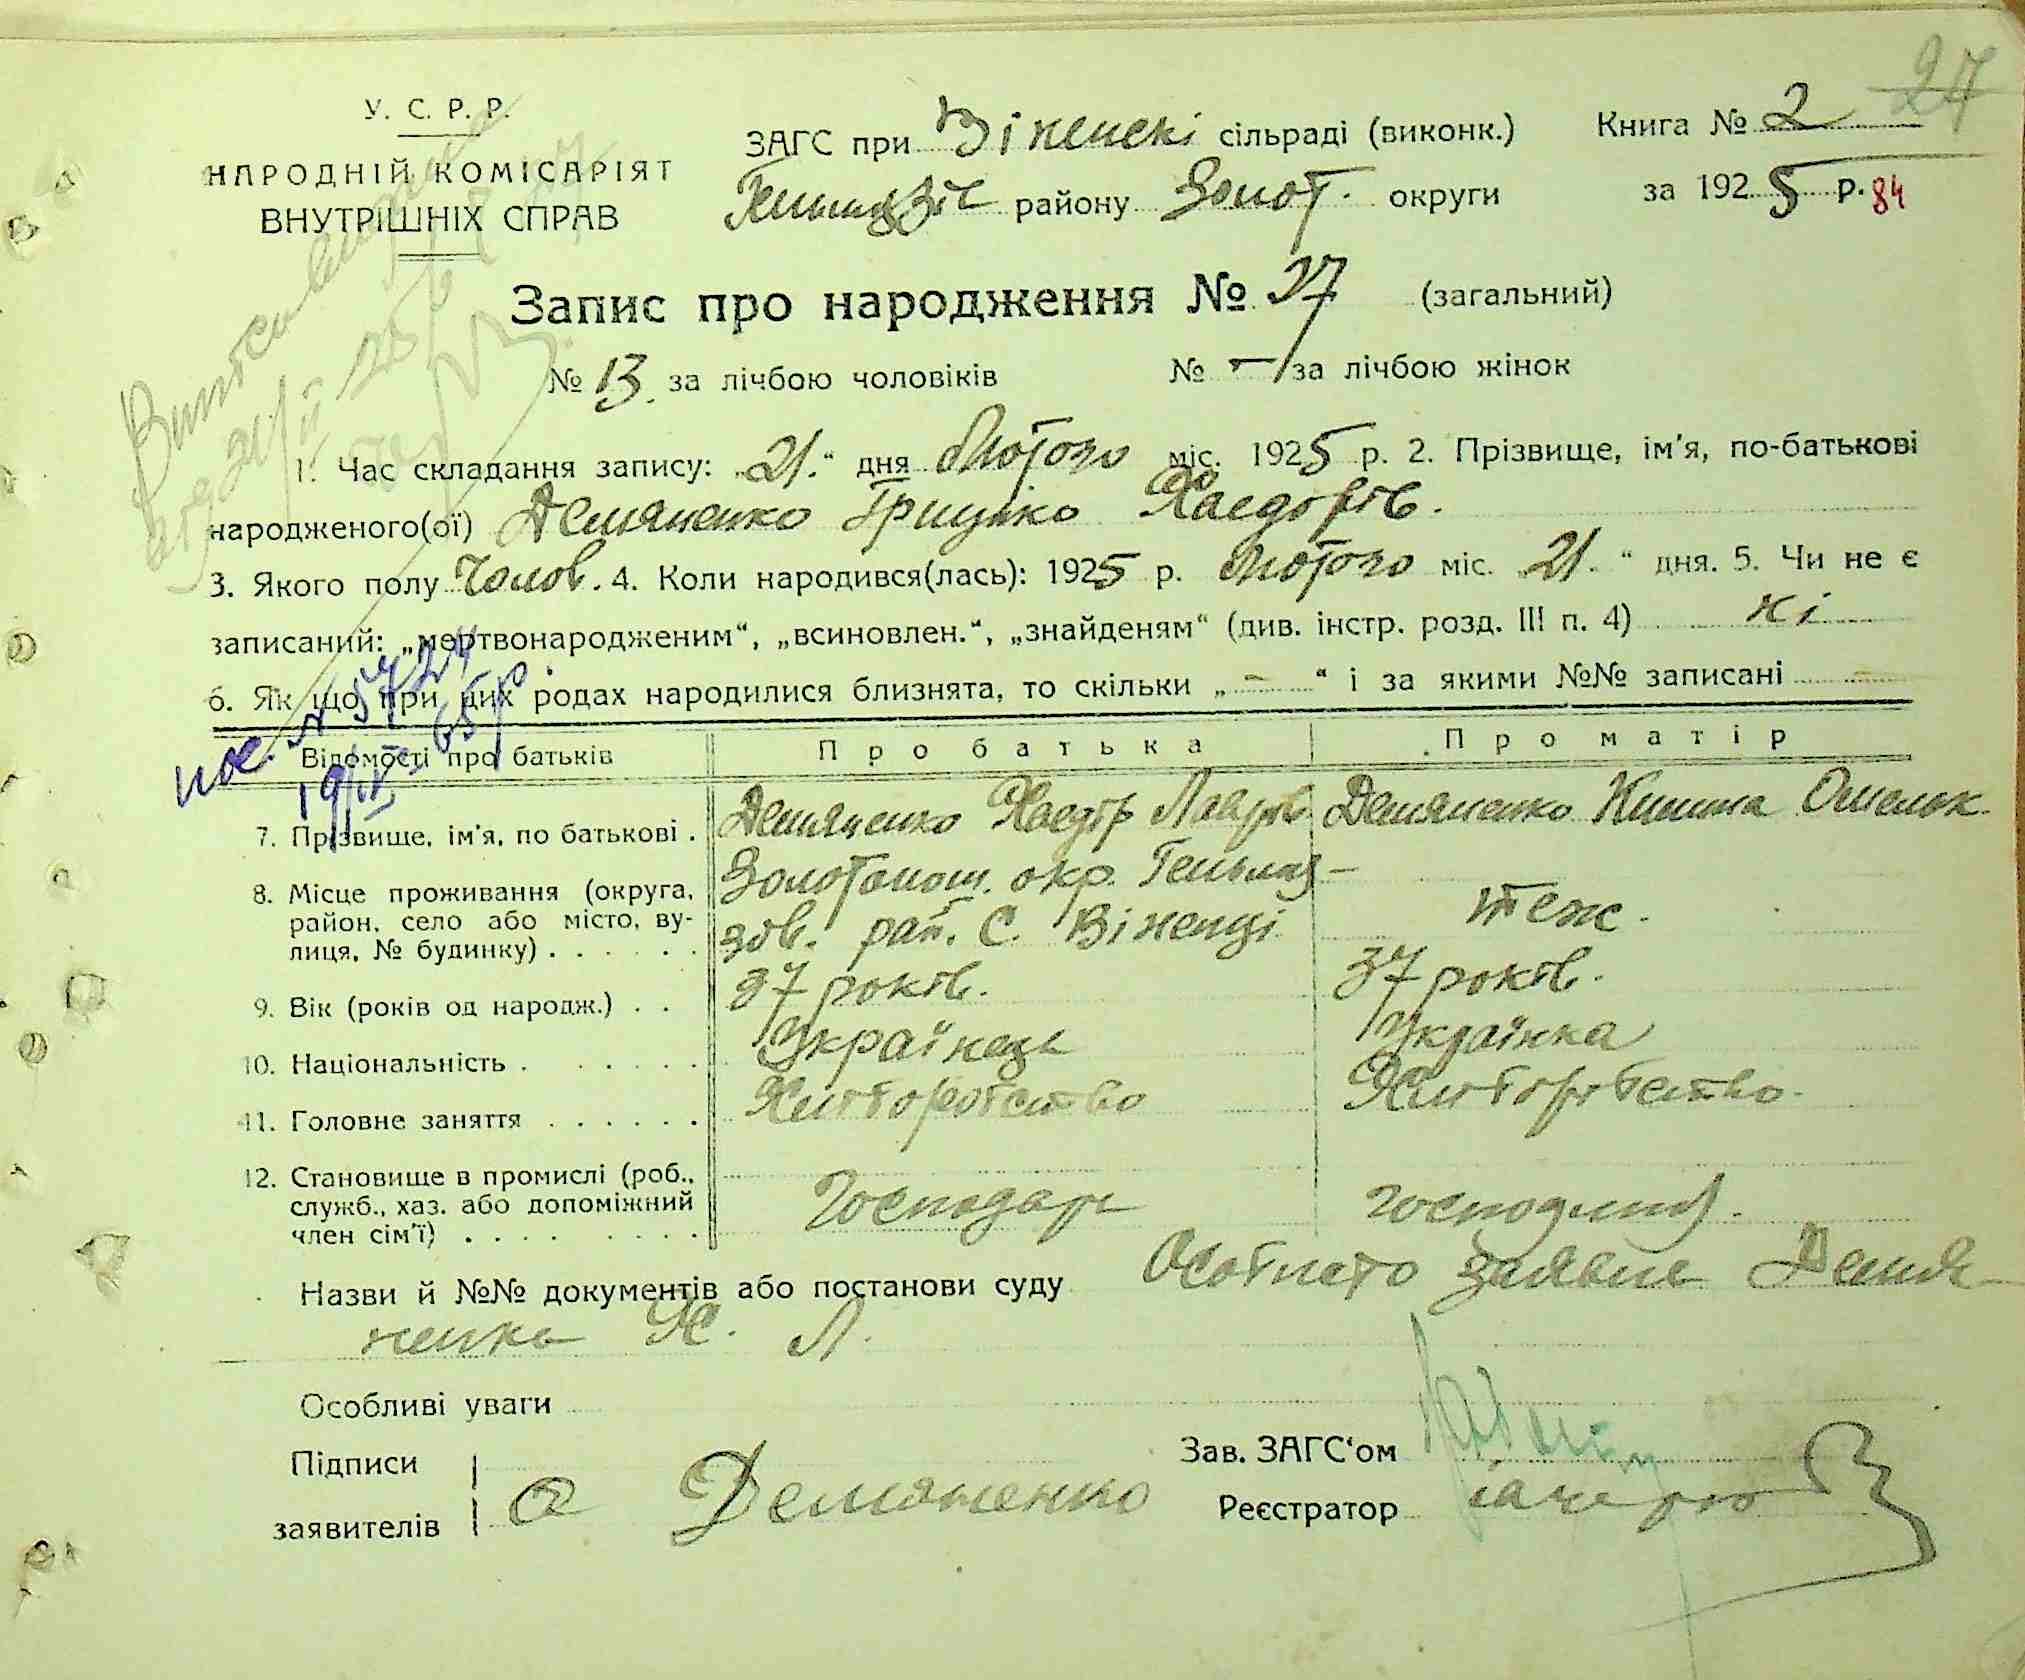 27
У. С. Р. Р.
НАРОДНІЙ КОМІСАРІЯТ
ВНУТРІШНІХ СПРАВ
ЗАГС при Віненскі сільраді (виконк.) Книга № 2
району Золот. округи за 1925 р. 84
Запис про народження № 27 (загальний)
№ 13. за лічбою чоловіків № — за лічбою жінок
1. Час складання запису: „21.“ дня Лютого міс. 1925 р. 2. Прізвище, ім'я, по-батькові
народженого(ої) Демяненко Грицько Хведорів.
3. Якого полу Чолов. 4. Коли народився(лась): 1925 р. Лютого міс. „21.“ дня. 5. Чи не є
записаний: „мертвонародженим“, „всиновлен.“, „знайденям“ (див. інстр. розд. III п. 4) ні
6. Як що при цих родах народилися близнята, то скільки „ — “ і за якими №№ записані —
Відомості про батьків Про батька Про матір
7. Прізвище, ім'я, по батькові . Демяненко Хведір Лаврів Демяненко Килина Омельк.
8. Місце проживання (округа, Золотонош. окр. Гельмяз-
район, село або місто, ву- зов. рай. С. Віненці теж.
лиця, № будинку) . . . . . .
9. Вік (років од народж.) . . 37 років. 37 років.
10. Національність . . . . . . . Українець Українка
11. Головне заняття . . . . . . Хліборобство Хліборобство.
12. Становище в промислі (роб.,
служб., хаз. або допоміжний Господарь господиня.
член сім'ї) . . . . . . . . .
Назви й №№ документів або постанови суду Особисто заявив Демя-
ненко Х. Л.
Особливі уваги
Підписи
заявителів Демяненко
Зав. ЗАГС‘ом
Реєстратор